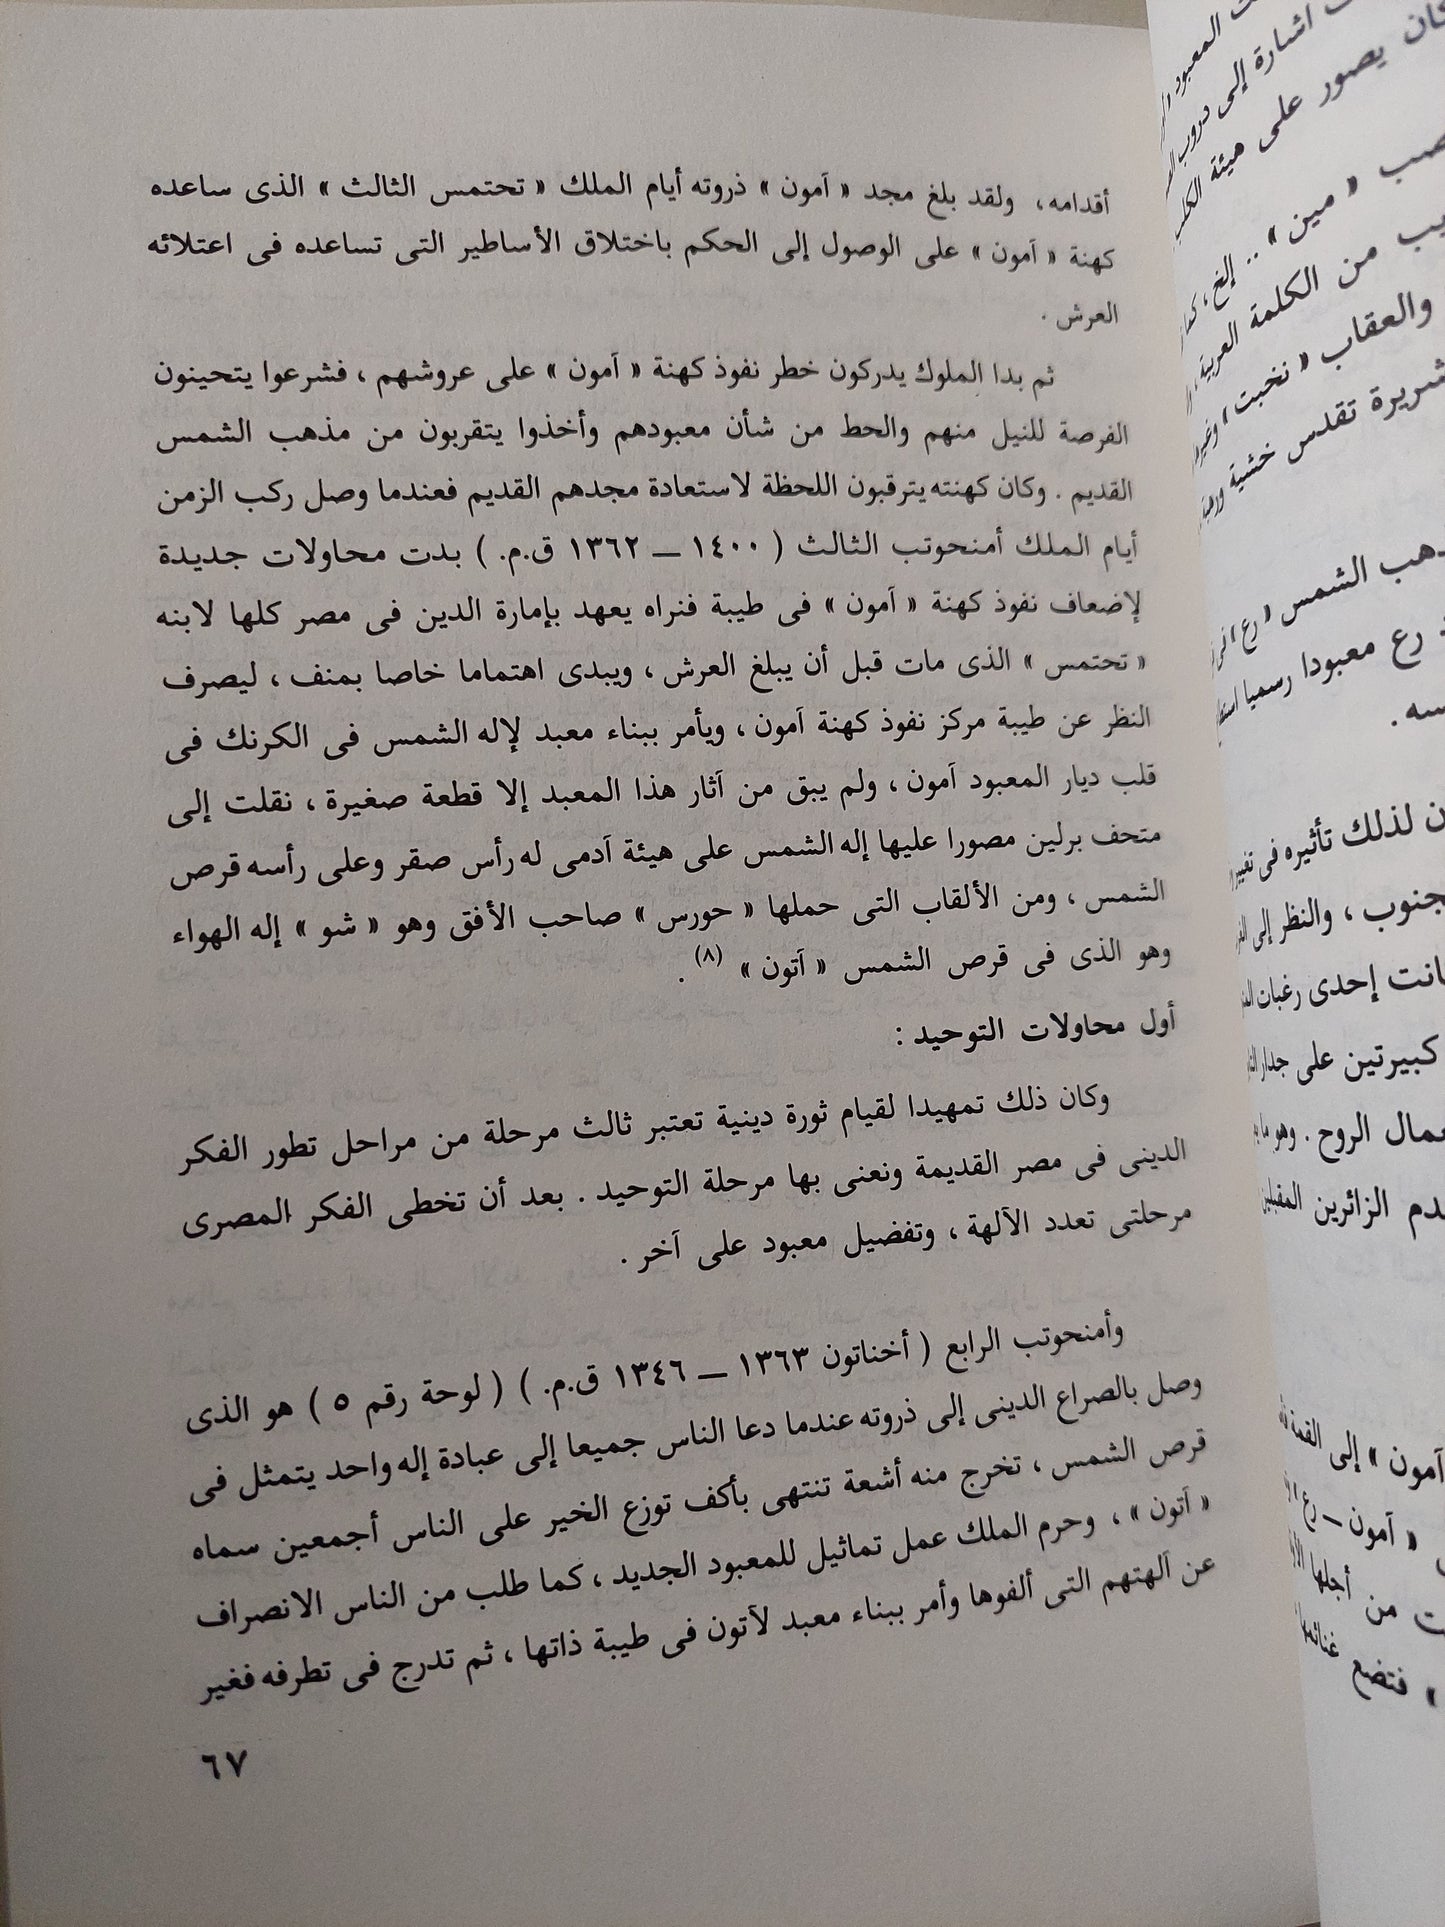 أقدامه، ولقد بلغ مجد « آمون » ذروته أيام الملك « تحتمس الثالث » الذى ساعده
كهنة « آمون » على الوصول إلى الحكم باختلاق الأساطير التى تساعده فى اعتلائه
العرش .
ثم بدا الملوك يدركون خطر نفوذ كهنة « آمون » على عروشهم ، فشرعوا يتحينون
الفرصة للنيل منهم والحط من شأن معبودهم وأخذوا يتقربون من مذهب الشمس
القديم . وكان كهنته يترقبون اللحظة لاستعادة مجدهم القديم فعندما وصل ركب الزمن
أيام الملك أمنحوتب الثالث ( ١٤٠٠ ــ ١٣٦٢ ق.م. ) بدت محاولات جديدة
لإضعاف نفوذ كهنة « آمون » فى طيبة فنراه يعهد بإمارة الدين فى مصر كلها لابنه
« تحتمس » الذى مات قبل أن يبلغ العرش ، ويبدى اهتماما خاصا بمنف ، ليصرف
النظر عن طيبة مركز نفوذ كهنة آمون ، ويأمر ببناء معبد لإله الشمس فى الكرنك فى
قلب ديار المعبود آمون ، ولم يبق من آثار هذا المعبد إلا قطعة صغيرة ، نقلت إلى
متحف برلين مصورا عليها إله الشمس على هيئة آدمى له رأس صقر وعلى رأسه قرص
الشمس ، ومن الألقاب التى حملها « حورس » صاحب الأفق وهو « شو » إله الهواء
وهو الذى فى قرص الشمس « آتون » (٨) .
أول محاولات التوحيد :
وكان ذلك تمهيدا لقيام ثورة دينية تعتبر ثالث مرحلة من مراحل تطور الفكر
الدينى فى مصر القديمة ونعنى بها مرحلة التوحيد . بعد أن تخطى الفكر المصرى
مرحلتى تعدد الآلهة ، وتفضيل معبود على آخر .
وأمنحوتب الرابع ( أخناتون ١٣٦٣ ــ ١٣٤٦ ق.م. ) ( لوحة رقم ٥ ) هو الذى
وصل بالصراع الدينى إلى ذروته عندما دعا الناس جميعا إلى عبادة إله واحد يتمثل فى
قرص الشمس ، تخرج منه أشعة تنتهى بأكف توزع الخير على الناس أجمعين سماه
« آتون » ، وحرم الملك عمل تماثيل للمعبود الجديد ، كما طلب من الناس الانصراف
عن آلهتهم التى ألفوها وأمر ببناء معبد لآتون فى طيبة ذاتها ، ثم تدرج فى تطرفه فغير
٦٧
المعبود
اشارة إلى دروب
كان يصور على هيئة
« مين » .. إلخ ،
من الكلمة العربية ،
والعقاب « نخبت »
شريرة تقدس خشية
الشمس « رع »
رع معبودا رسميا
لذلك تأثيره فى
، والنظر إلى
إحدى رغبات
كبيرتين على جدار
الروح . وهو
الزائرين المقبلين
آمون » إلى القمة
« آمون ــ رع
من أجلها
» فتضع